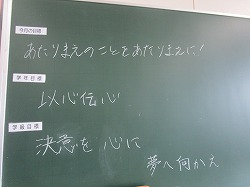 今日の目標
あたりまえのことをあたりまえに!
学年目標
以心伝心
学級目標
決意を 心に
夢へ向かえ